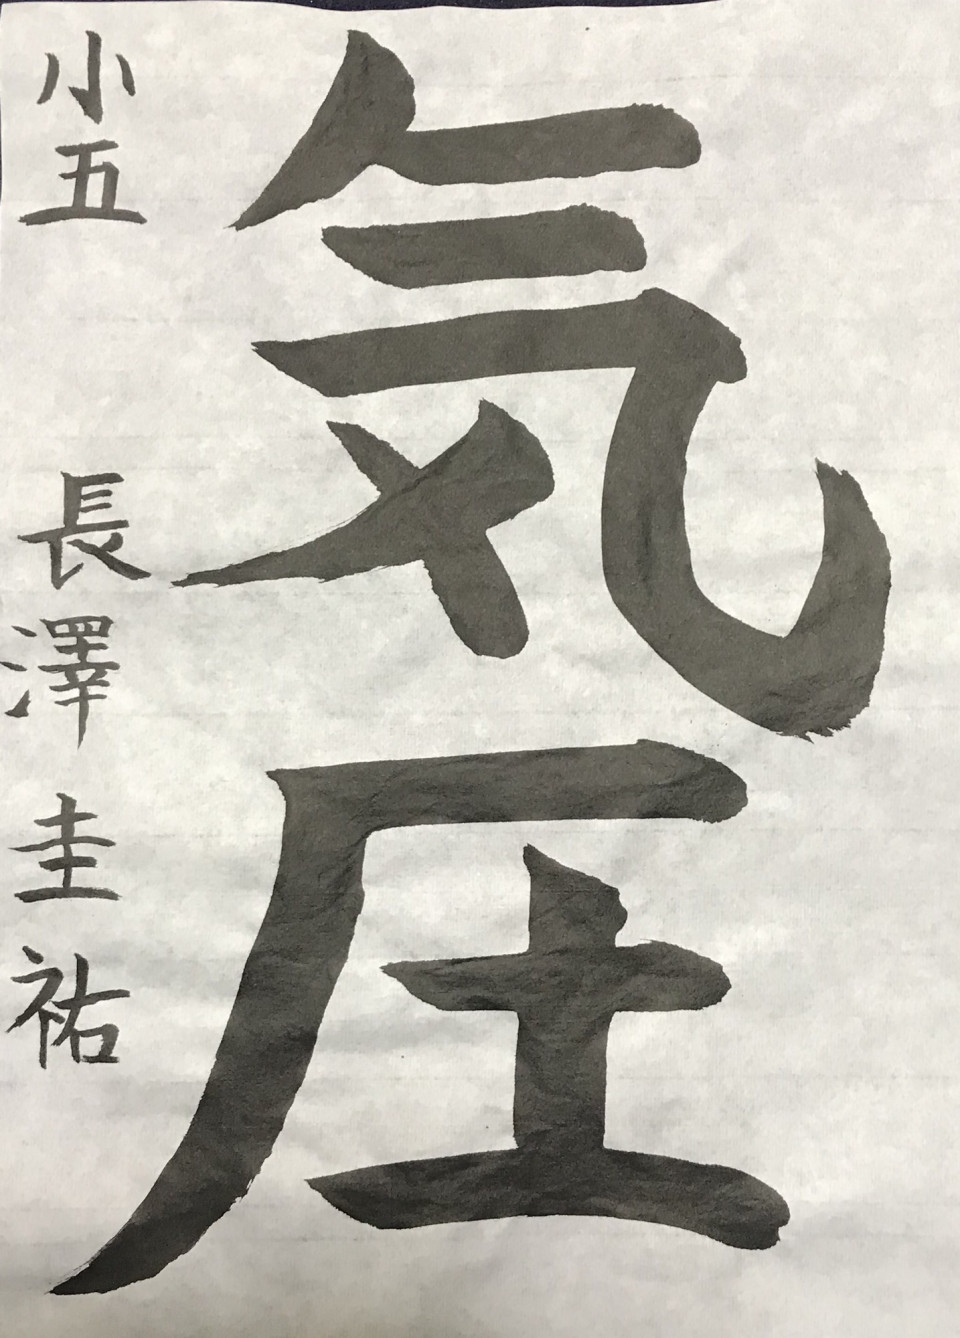 気圧
小五 長澤圭祐